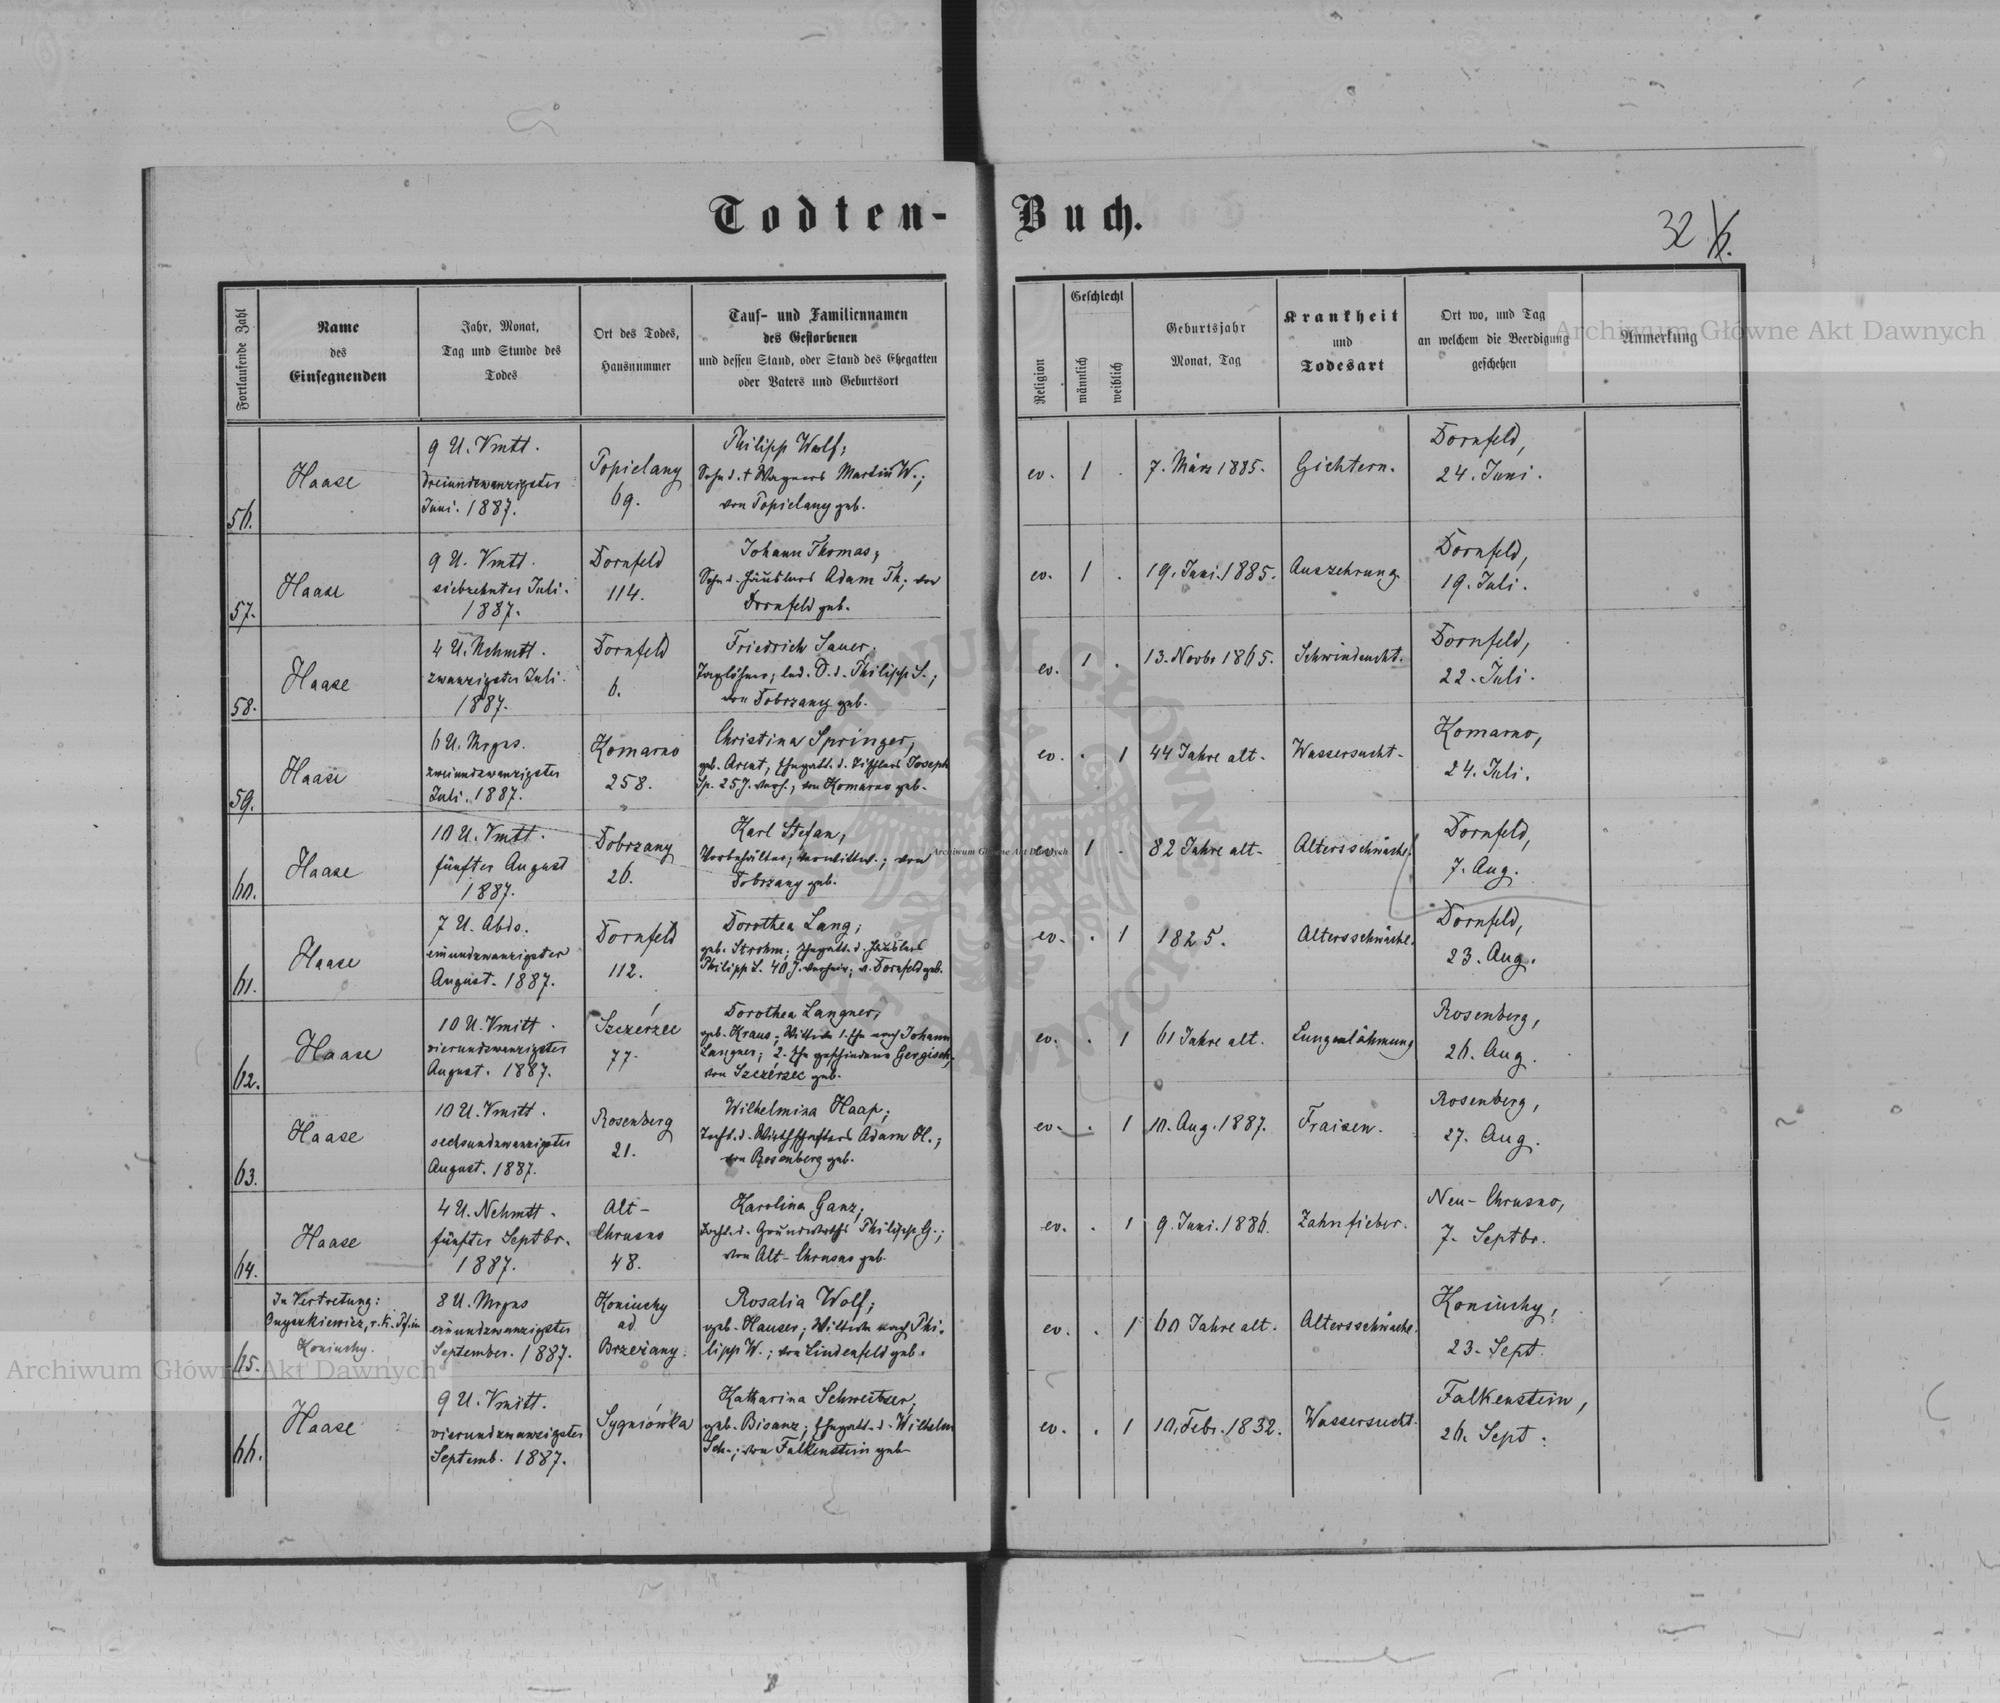 Todten-Buch.
32
Fortlaufende Zahl
Name
des
Einsegnenden
Jahr, Monat,
Tag und Stunde des
Todes
Ort des Todes,
Hausnummer
Tauf- und Familiennamen
des Gestorbenen
und dessen Stand, oder Stand des Ehegatten
oder Vaters und Geburtsort
Religion
Geschlecht
männlich
weiblich
Geburtsjahr
Monat, Tag
Krankheit
und
Todesart
Ort wo, und Tag
an welchem die Beerdigung
geschehen
Anmerkung
Archiwum Główne Akt Dawnych
56.
Haase
9 U. Vmtt.
dreiundzwanzigster
Juni. 1887.
Popielany
69.
Philipp Wolf;
Sohn d. † Wagners Martin W.;
von Popielany geb.
ev. 1 .
7. März 1885.
Gichtern.
Dornfeld,
24. Juni.
57.
Haase
9 U. Vmtt.
siebzehnter Juli.
1887.
Dornfeld
114.
Johann Thomas;
Sohn d. Häuslers Adam Th.; von
Dornfeld geb.
ev. 1 .
19. Juni. 1885.
Auszehrung.
Dornfeld,
19. Juli.
58.
Haase
4 U. Nchmtt.
zwanzigster Juli.
1887.
Dornfeld
6.
Friedrich Sauer;
Taglöhner; led. S. d. Philipp S.;
von Dobrzany geb.
ev. 1 .
13. Novbr 1865.
Schwindsucht.
Dornfeld,
22. Juli.
59.
Haase
6 U. Mrgns.
zweiundzwanzigster
Juli. 1887.
Komarno
258.
Christina Springer,
geb. Arent, Ehegatt. d. Tischlers Joseph
Sp. 25 J. verh.; von Komarno geb.
ev. . 1
44 Jahre alt.
Wassersucht.
Komarno,
24. Juli.
60.
Haase
10 U. Vmtt.
fünfter August
1887.
Dobrzany
26.
Karl Stefan;
Vorbehälter; verwittw.; von
Dobrzany geb.
ev. 1 .
82 Jahre alt.
Altersschwäche.
Dornfeld,
7. Aug.
61.
Haase
7 U. Abds.
einundzwanzigster
August. 1887.
Dornfeld
112.
Dorothea Lang;
geb. Strohm; Ehegatt. d. Häuslers
Philipp L. 40 J. verheir; v. Dornfeld geb.
ev. . 1
1825.
Altersschwäche.
Dornfeld,
23. Aug.
62.
Haase
10 U. Vmitt.
vierundzwanzigster
August. 1887.
Szczérzec
77.
Dorothea Langner;
geb. Kraus; Wittwe 1. Ehe nach Johann
Langner; 2. Ehe geschiedene Gergisch;
von Szczérzec geb.
ev. . 1
61 Jahre alt.
Lungenlähmung
Rosenberg,
26. Aug.
63.
Haase
10 U. Vmitt.
sechsundzwanzigster
August. 1887.
Rosenberg
21.
Wilhelmina Haap;
Tocht. d. Wirthschafters Adam H.;
von Rosenberg geb.
ev. . 1
10. Aug. 1887.
Fraisen.
Rosenberg,
27. Aug.
64.
Haase
4 U. Nchmtt.
fünfter Septbr.
1887.
Alt-
Chrusno
48.
Karolina Ganz;
Tocht. d. Grundwirths Philipp G.;
von Alt-Chrusno geb.
ev. . 1
9. Juni. 1886.
Zahnfieber.
Neu-Chrusno,
7. Septbr.
65.
In Vertretung:
Onyszkiewicz, r. k. Pf. in
Koniuchy.
8 U. Mrgns
einundzwanzigster
September. 1887.
Koniuchy
ad
Brzeżany.
Rosalia Wolf;
geb. Hauser; Wittwe nach Phi-
lipp W.; von Lindenfeld geb.
ev. . 1
60 Jahre alt.
Altersschwäche.
Koniuchy,
23. Sept.
66.
Haase
9 U. Vmitt.
vierundzwanzigster
Septemb. 1887.
Sygniówka
Katharina Schweitzer,
geb. Bisanz; Ehegatt. d. Wilhelm
Sch.; von Falkenstein geb.
ev. . 1
10. Febr. 1832.
Wassersucht.
Falkenstein,
26. Sept.
Archiwum Główne Akt Dawnych
Archiwum Główne Akt Dawnych